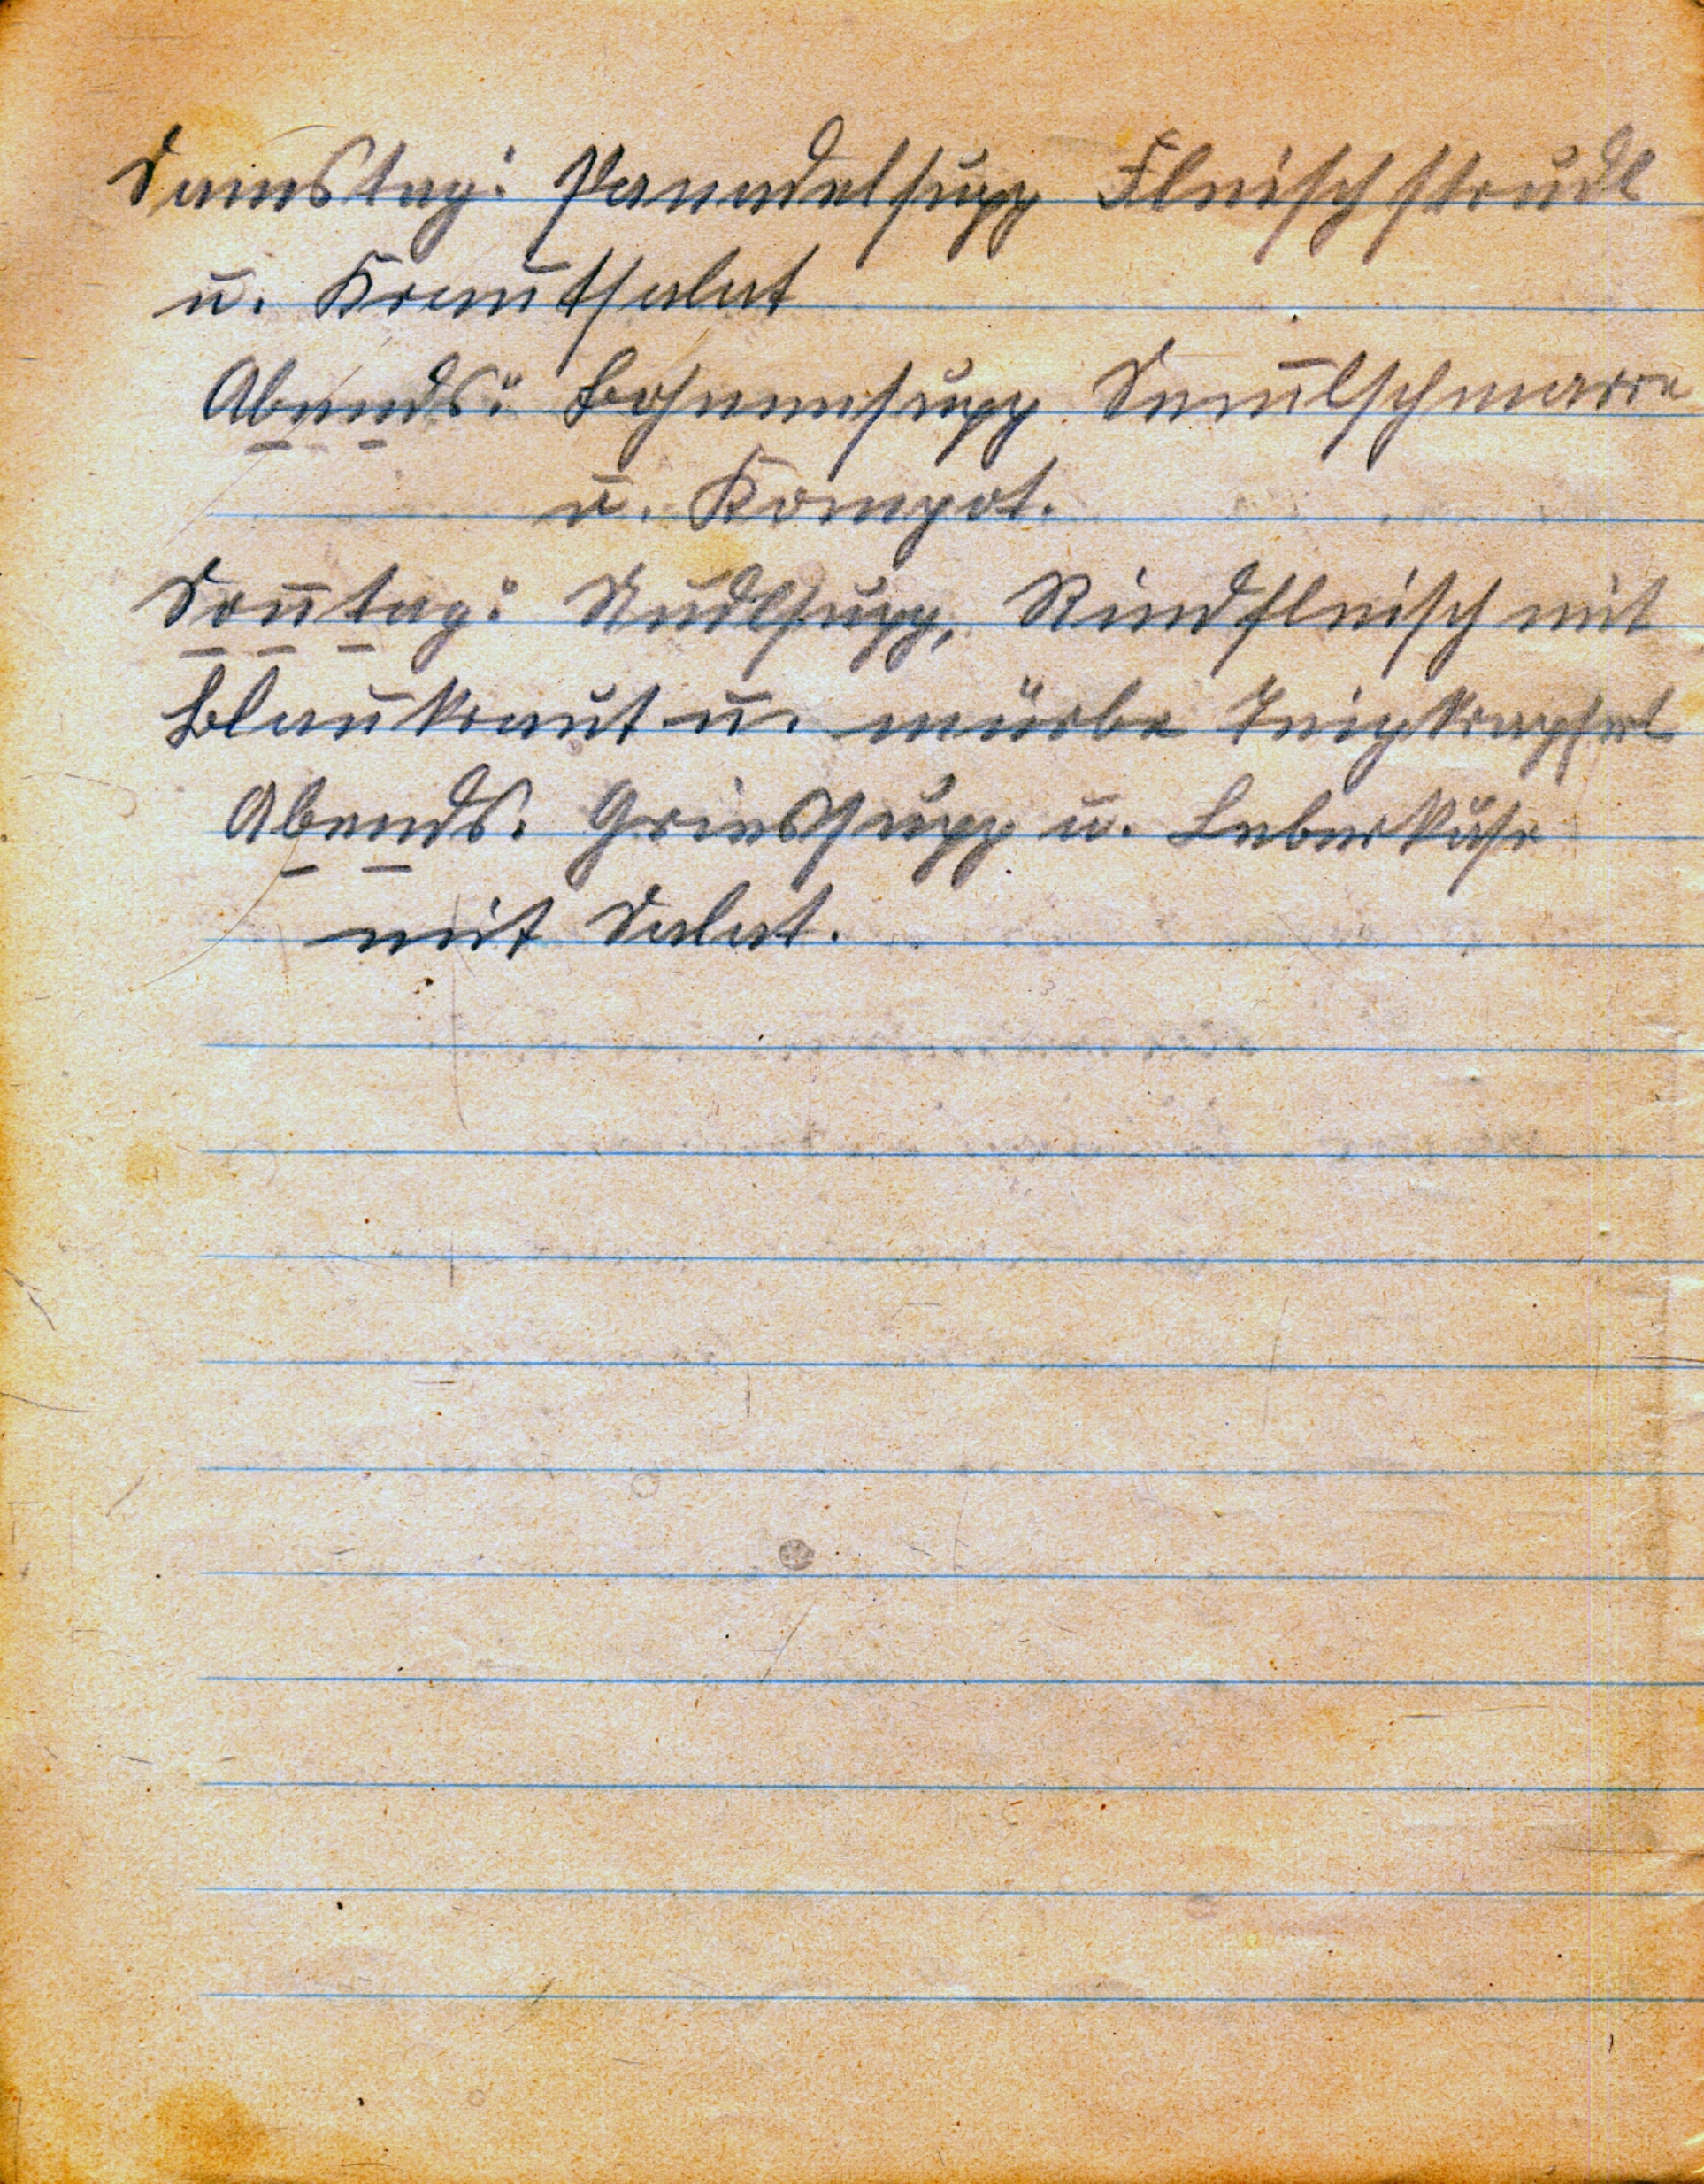 Samstag: Panadelsupp Fleischstrudl
u. Krautsalat
Abends: Bohnensupp Semmelschmarre
u. Kompot.
Sontag: Nudlsupp, Rindfleisch mit
Blaukraut u. mürbe Teigkrapferl
Abends: Griessupp u. Leberkäse
mit Salat.